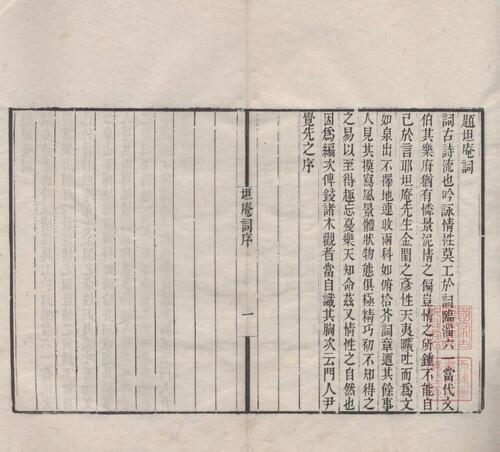 題坦庵詞
詞古詩流也吟詠情性莫工於詞臨淄六一當代文
伯其樂府猶有憐景泥情之偏豈情之所鍾不能自
已於言耶坦庵先生金閨之彥性天夷曠吐而爲文
如泉出不擇地連收兩科如俯拾芥詞章迺其餘事
人見其摸寫風景體狀物態俱極精巧初不知得之
之易以至得趣忘憂樂天知命茲又情性之自然也
因爲編次俾鋟諸木觀者當自識其胸次云門人尹
覺先之序
坦庵詞序
一